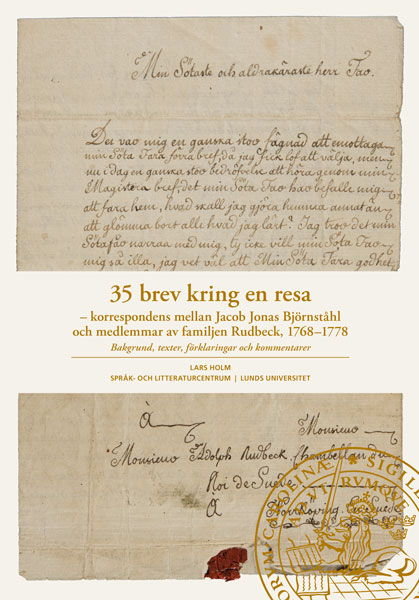 Min Sötaste och aldrakäraste herr Far.
Det var mig en ganska stor fägnad att emottaga
min Söta Fars förra bref, då jag fick lof att välja, men
nu i dag en ganska stor bedröfvelse att höra genom min
Magisters bref, det min Söta Far har befalt mig
att fara hem, hvad skall jag gjöra hemma annat än
att glömma bort alt hvad jag lärt? Jag tror det min
Söta far narras med mig, ty icke vill min Söta Far
mig så illa, jag vet väl att Min Söta Fars godhet
35 brev kring en resa
– korrespondens mellan Jacob Jonas Björnståhl
och medlemmar av familjen Rudbeck, 1768–1778
Bakgrund, texter, förklaringar och kommentarer
LARS HOLM
SPRÅK- OCH LITTERATURCENTRUM | LUNDS UNIVERSITET
À Monsieur
Monsieur Adolph Rudbeck, Chambellan du
Roi de Suede
À Norrköping En Suede